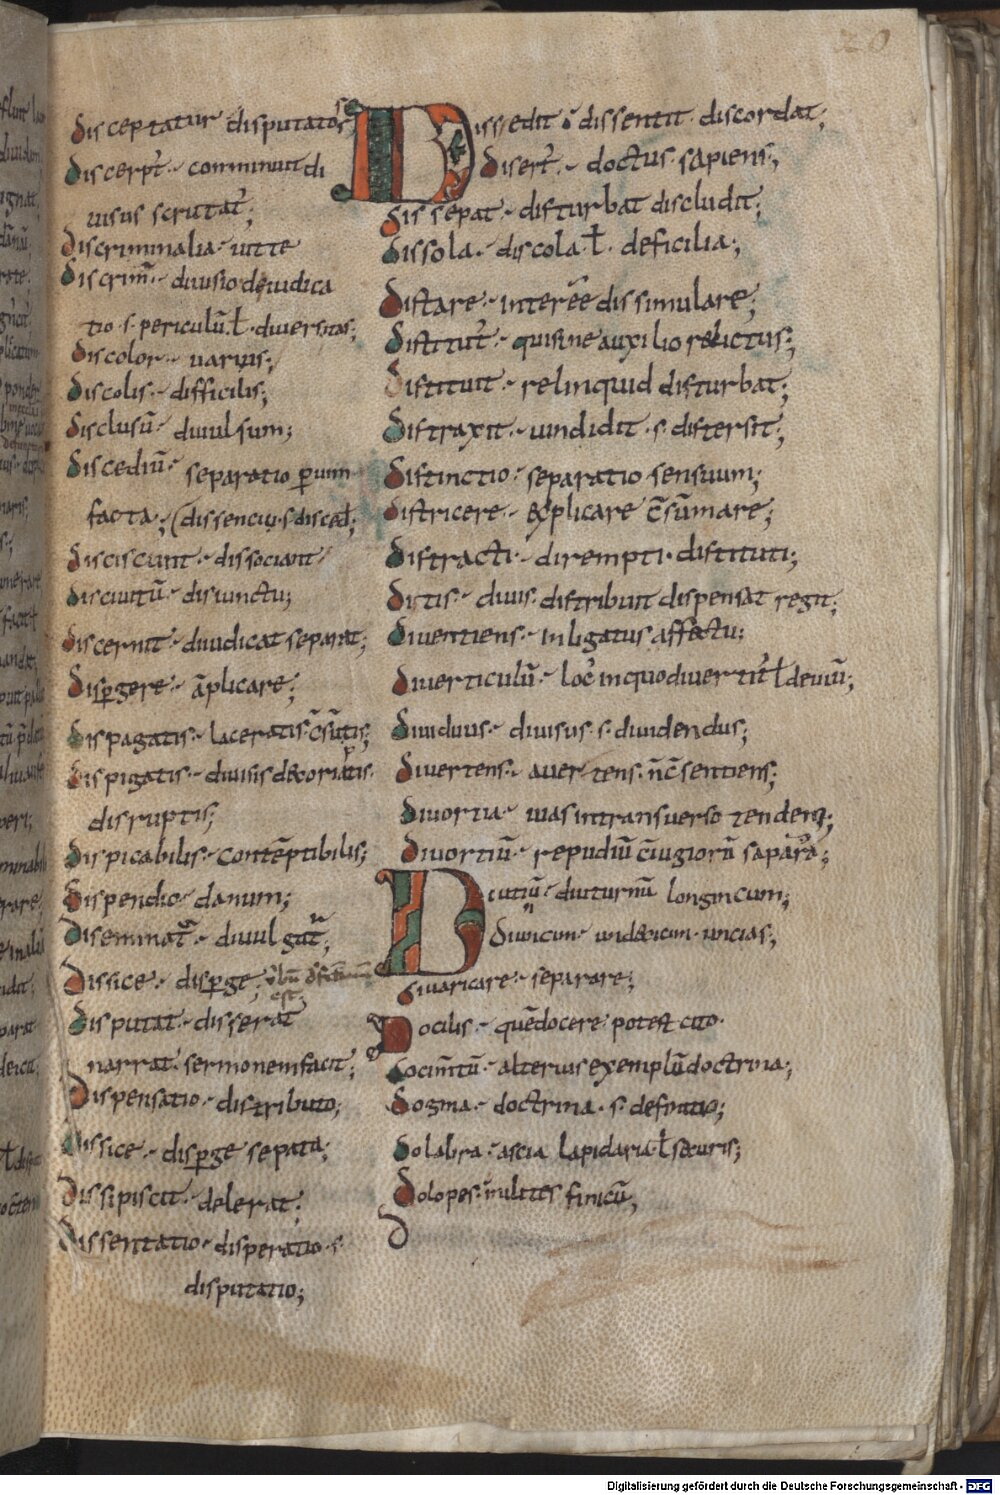 20
disceptatur · disputatos
discerpt̄ · comminuit di
uisus scrutat̄;
discriminalia · uitte
discrim̄ · diuisio deiudica
tio · s · periculū · ł · diuersitas;
discolor · uarius;
discolis · difficilis;
disclusū · diuulsum;
discediū · separatio ꝑuim
facta; (dissenciu · s · disced;
disciscunt · dissociant
disciunctū · disiunctu;
discernit · diiudicat separat;
disꝑgere · āplicare;
dispagatis · laceratis · c̄sūtis;
dispigatis · diuisis decoriatis
disruptis;
dispicabilis · contēptibilis;
dispendio · danum;
diseminat̄ · diuulgat̄;
dissice · disꝑge;
est
disputat · disserat
narrat · sermonem facit;
dispensatio · distributo;
dissice · disꝑge separa;
dissipiscit · delerat;
dissentatio · disperatio · s
disputatio;
Dissedit · dissentit · discordat;
disert̄ · doctus · sapiens;
dissepat · disturbat discludit;
dissola · discola · ł · deficilia;
distare · interēē dissimulare;
distitut̄ · qui sine auxilio relictus;
distituit · relinquid disturbat;
distraxit · uindidit · s · distersit;
distinctio · separatio sensuum;
districere · explicare c̄sūmare;
distracti · dirempti · distituti;
ditis · diuis · distribuit dispensat regit;
diuentiens · inligatus affectu;
diuerticulū · loc̄ inquo diuertit̄ ł deuiū;
diuiduus · diuisus · s · diuidendus;
diuertens · auertens · n̄c̄ sentiens;
diuortia · uias intransuerso tendenȝ;
diuortiū · repudiū c̄iugiorū saparō;
Diutiū · diuturnū longincum;
diuncun · undecium · uncias;
diuaricare · separare;
Docilis · quē docere potest cito
docim̄tū · alterius exemplū doctrina;
dogma · doctrina · s · definitio;
dolabra · ascia lapidaria · ł securis;
dolopes · milites finicū;
d
Digitalisierung gefördert durch die Deutsche Forschungsgemeinschaft - DFG